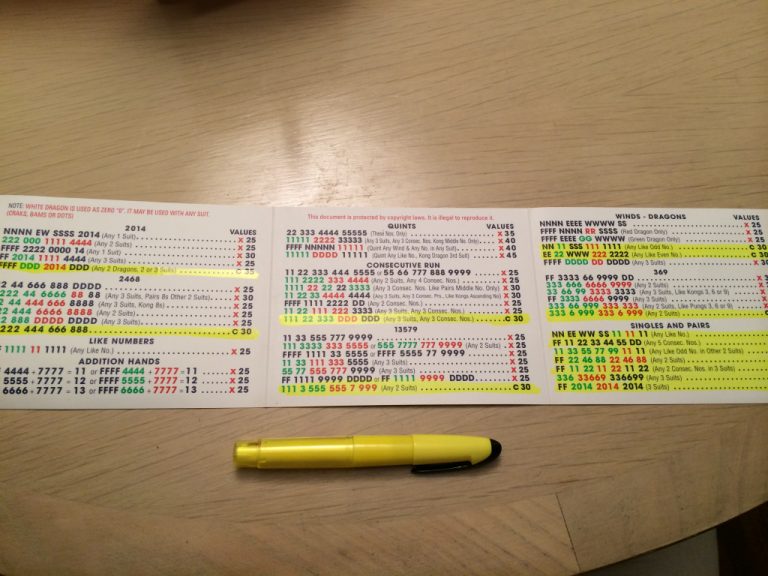 NOTE: WHITE DRAGON IS USED AS ZERO "0". IT MAY BE USED WITH ANY SUIT.
(CRAKS, BAMS OR DOTS)
2014 VALUES
NNNN EW SSSS 2014 (Any 1 Suit) X 25
222 000 1111 4444 (Any 2 Suits) X 25
FFFF 2222 0000 14 (Any 1 Suit) X 25
FF 2014 1111 4444 (Any 3 Suits) X 30
FFFF DDD 2014 DDD (Any 2 Dragons, 2 or 3 Suits) C 35
2468
22 44 666 888 DDDD X 25
222 44 6666 88 88 (Any 3 Suits, Pairs 8s Other 2 Suits) X 30
22 44 444 666 8888 (Any 3 Suits, Kong 8s) X 25
222 4444 6666 8888 (Any 2 Suits) X 25
FF 2222 DDDD (Any 3 Suits) X 25
222 444 666 888 C 30
LIKE NUMBERS
1111 11 1111 (Any Like No.) X 25
ADDITION HANDS
4444 + 7777 = 11 or FFFF 4444 + 7777 = 11 X 25
5555 + 7777 = 12 or FFFF 5555 + 7777 = 12 X 25
6666 + 7777 = 13 or FFFF 6666 + 7777 = 13 X 25
This document is protected by copyright laws. It is illegal to reproduce it.
QUINTS VALUES
22 333 4444 55555 (These Nos. Only) X 35
11111 2222 33333 (Any 3 Suits, Any 3 Consec. Nos. Kong Middle No. Only) X 40
FFFF NNNNN 11111 (Quint Any Wind & Any No. in Any Suit) X 40
11111 DDDD 11111 (Quint Any Like No., Kong Dragon 3rd Suit) X 45
CONSECUTIVE RUN
11 22 333 444 5555 or 55 66 777 888 9999 X 25
111 2222 333 4444 (Any 2 Suits, Any 4 Consec. Nos.) X 25
1111 22 22 22 3333 (Any 3 Suits, Any 3 Consec. Nos. Like Pairs Middle No. Only) X 30
11 22 33 4444 4444 X 30
FFFF 1111 2222 DD (Any 2 Consec. Nos.) X 25
11 22 111 222 3333 (Any 3 Suits, Any 3 Consec. Nos.) X 25
111 22 333 DDD DDD (Any 3 Suits, Any 3 Consec. Nos.) C 30
13579
11 33 555 777 9999 X 25
111 3333 333 5555 or 555 7777 777 9999 (Any 2 Suits) X 25
FFFF 1111 33 5555 or FFFF 5555 77 9999 X 25
11 33 111 333 5555 (Any 3 Suits) X 25
55 77 555 777 9999 (Any 3 Suits) X 25
FF 1111 9999 DDDD or FF 1111 9999 DDDD X 25
111 3 555 555 7 999 (Any 2 Suits) C 30
WINDS - DRAGONS VALUES
NNNN EEEE WWWW SS X 25
FFFF NNNN RR SSSS (Red Dragon Only) X 25
FFFF EEEE GG WWWW (Green Dragon Only) X 25
NN 11 SSS 111 1111 (Any Like Odd No.) C 30
EE 22 WWW 222 2222 (Any Like Even No.) C 30
FFFF DDDD DD DDDD (Any 3 Suits) X 25
369
FF 3333 66 9999 DD X 25
333 666 6666 9999 (Any 2 Suits) X 25
33 66 99 3333 3333 (Any 3 Suits, Like Kongs 3, 6 or 9) X 25
FF 3333 6666 9999 (Any 3 Suits) X 25
333 6 999 333 6 999 (Any 2 Suits) C 30
SINGLES AND PAIRS
NN EE WW SS 11 11 11 (Any Like No.)
FF 11 22 33 44 55 DD (Any 5 Consec. Nos.)
11 33 55 77 99 11 11 (Any Like Odd No. in Other 2 Suits)
FF 22 46 88 22 46 88 (Any 2 Suits)
FF 11 22 11 22 11 22 (Any 2 Consec. Nos. in 3 Suits)
336 33669 336699 (Any 3 Suits)
FF 2014 2014 2014 (3 Suits)